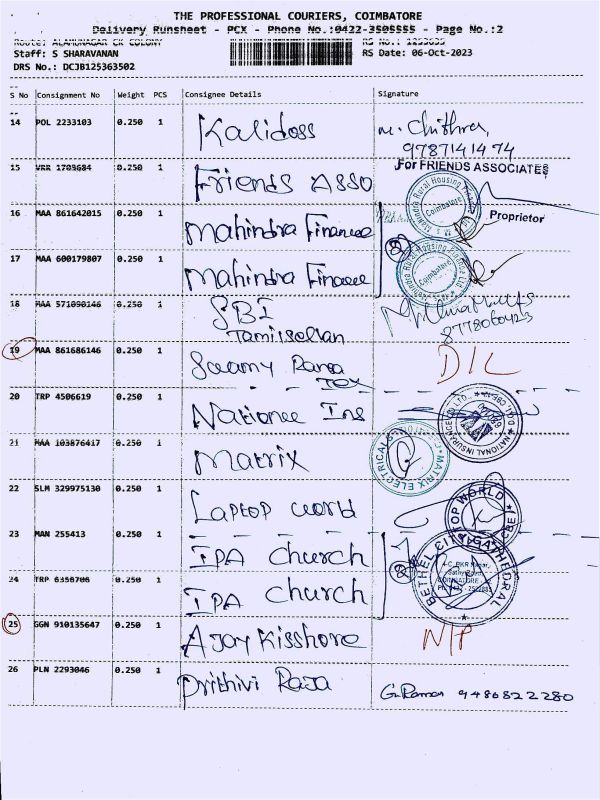 THE PROFESSIONAL COURIERS, COIMBATORE
Delivery Runsheet - PCX - Phone No.:0422-3505555 - Page No.:2
Route: ALAMUNAGAR CK COLONY
RS No.: 1253635
Staff: S SHARAVANAN
RS Date: 06-Oct-2023
DRS No.: DCJB125363502
S No Consignment No Weight PCS Consignee Details Signature
14 POL 2233103 0.250 1 Kalidoss M. Chithra,
9787141474
For FRIENDS ASSOCIATES
15 VRR 1703684 0.250 1 Friends Asso
Proprietor
16 MAA 861642015 0.250 1 Mahindra Finance
Coimbatore
17 MAA 600179807 0.250 1 Mahindra Finance
Coimbatore
18 MAA 571090146 0.250 1 SBI
Tamilselvan
8778060423
19 MAA 861686146 0.250 1 Swamy Rama
Tex
D/L
20 TRP 4506619 0.250 1 National Ins
NATIONAL INSURANCE CO. LTD.,
21 MAA 103876417 0.250 1 Matrix
MATRIX ELECTRICALS
22 SLM 329975130 0.250 1 Laptop world
LAPTOP WORLD
CBE
23 MAN 255413 0.250 1 IPA church
BETHEL CITY AG CATHEDRAL
24 TRP 6350706 0.250 1 IPA church
COIMBATORE
25 GGN 910135647 0.250 1 Ajay Kisshore N/P
26 PLN 2293046 0.250 1 Prithivi Raja G. Raman 9486822280